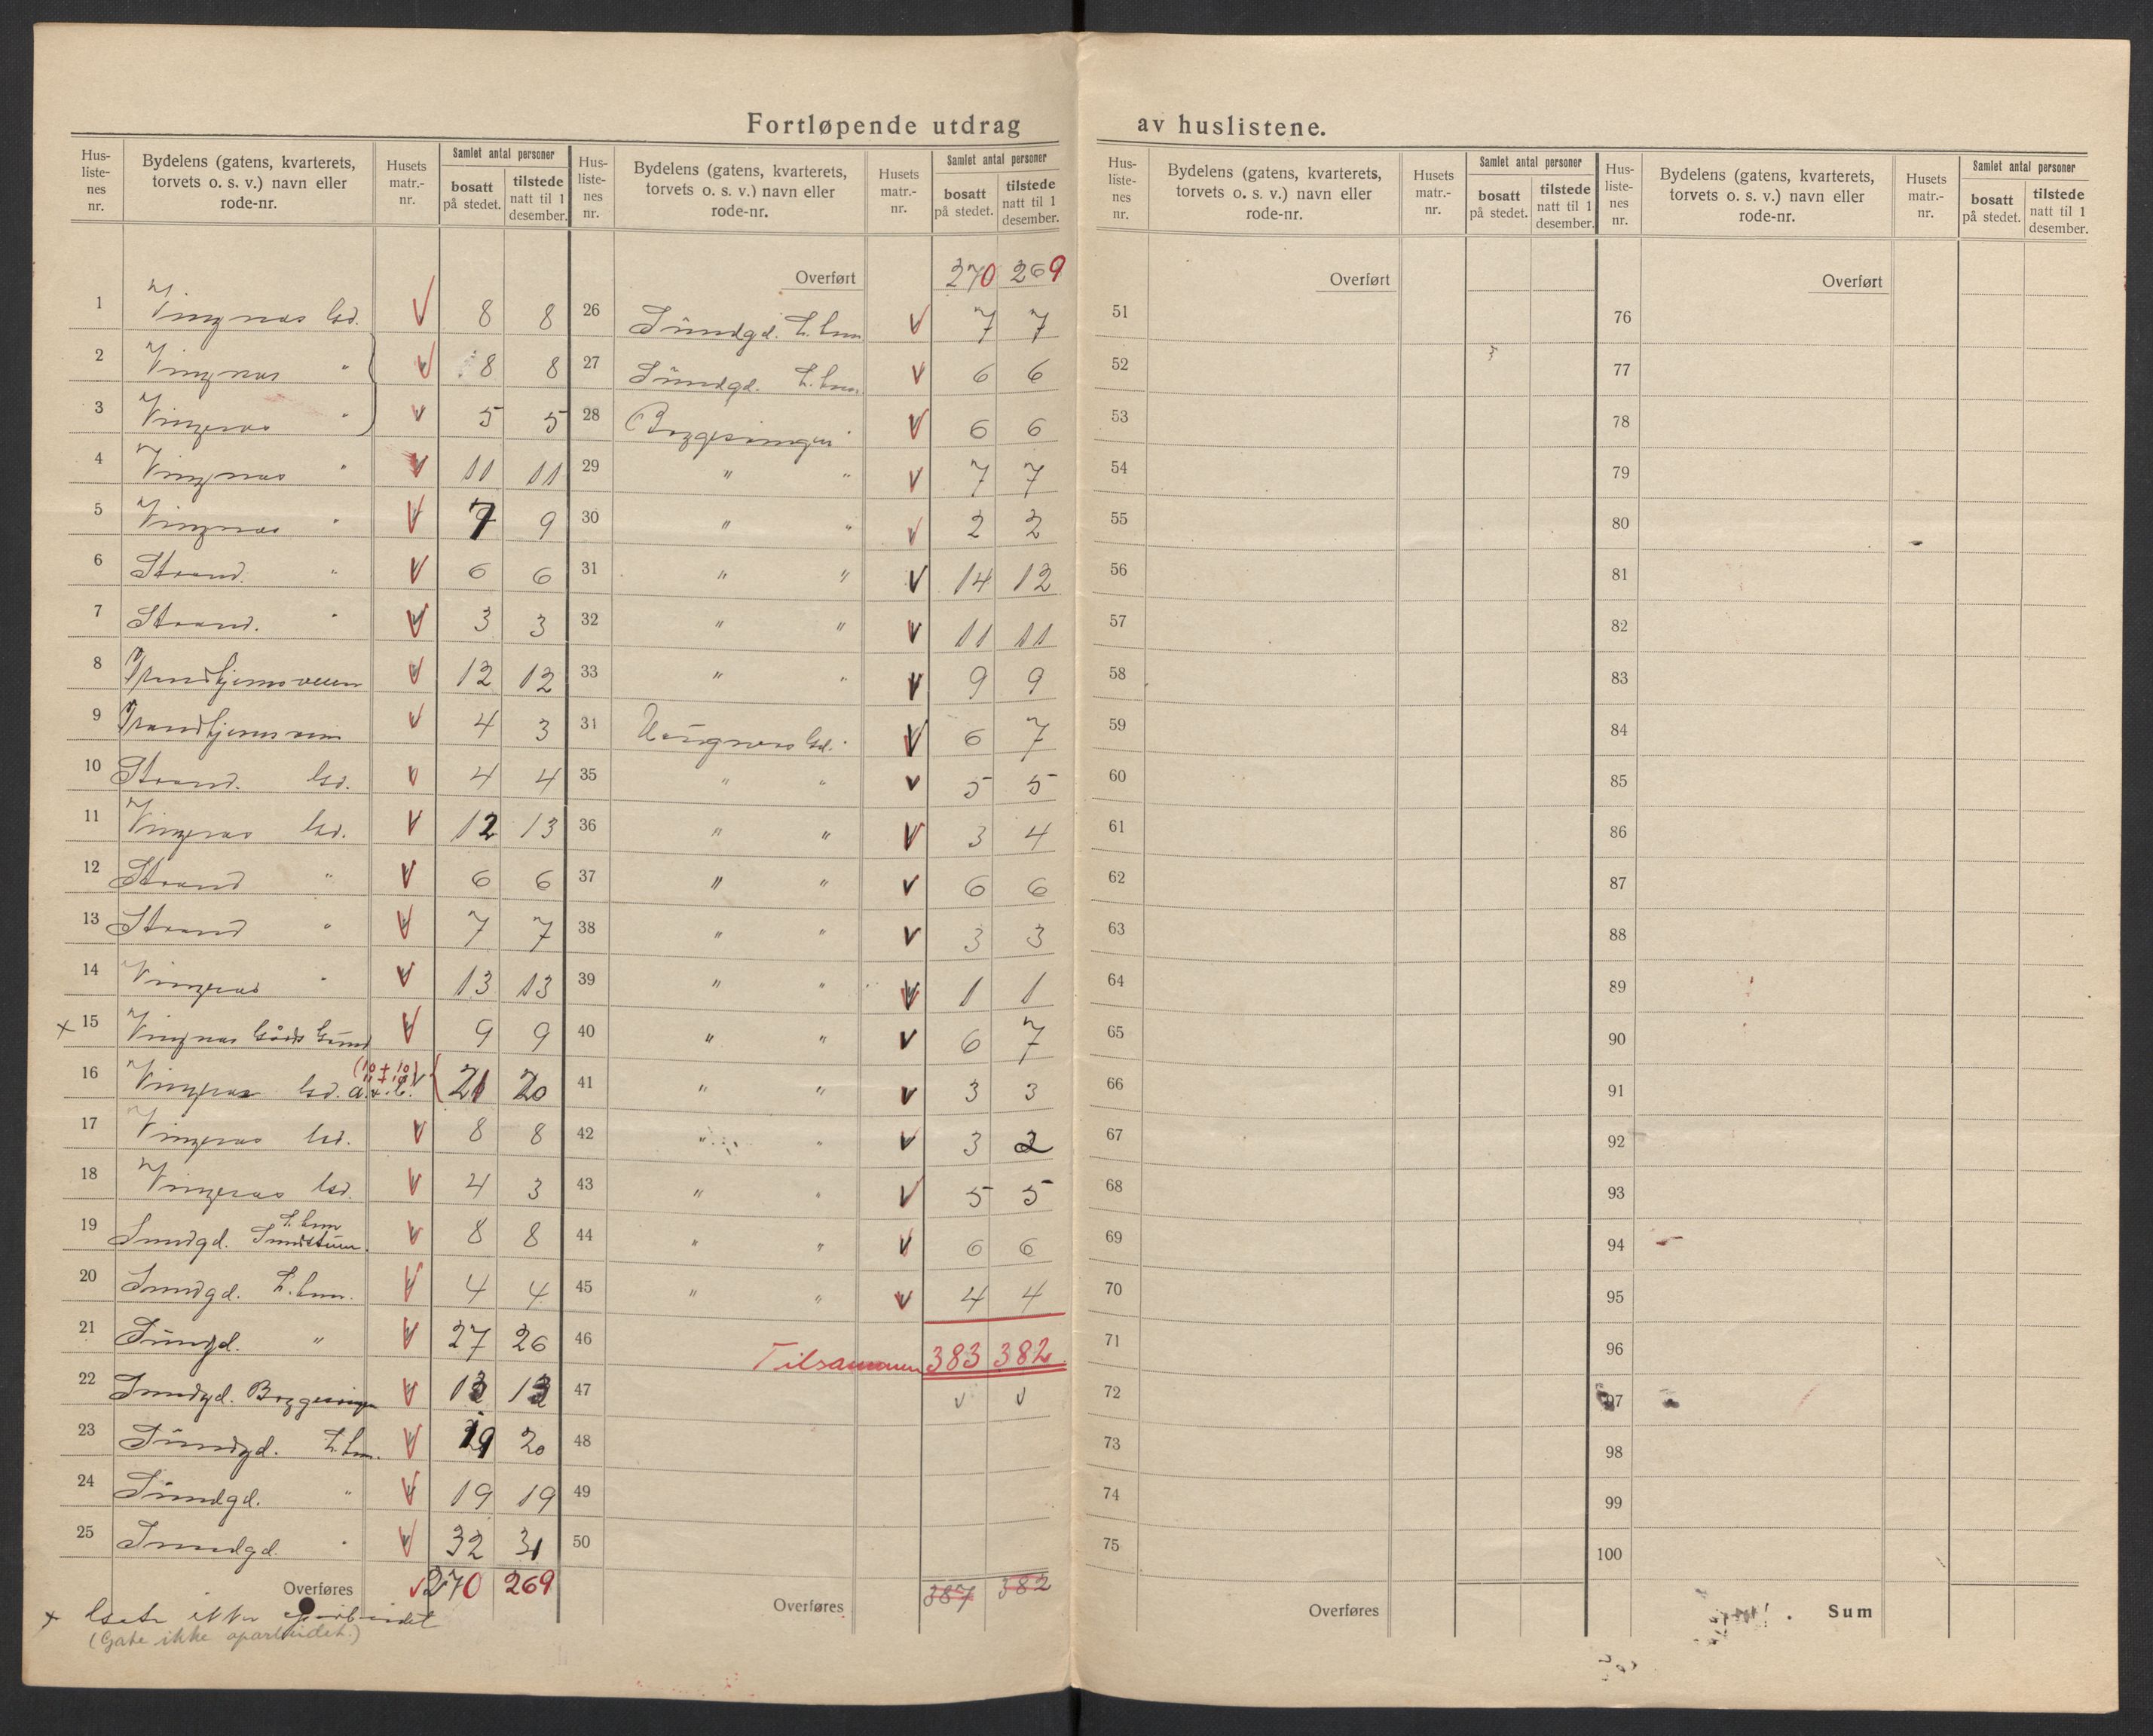 Fortløpende utdrag av huslistene.
Hus-listenes nr. Bydelens (gatens, kvarterets, torvets o. s. v.) navn eller rode-nr. Husets matr.-nr. Samlet antal personer bosatt på stedet. tilstede natt til 1 desember.
1 Vingnas Gd. V 8 8
2 Vingnas " V 8 8
3 Vingnas " V 5 5
4 Vingnas " V 11 11
5 Vingnas " V 7 9
6 Strand. " V 6 6
7 Strand. " V 3 3
8 Trondhjemsveien V 12 12
9 Trondhjemsveien V 4 3
10 Strand. Gd. V 4 4
11 Vingnas Gd. V 12 13
12 Strand " V 6 6
13 Strand " V 7 7
14 Vingnas " V 13 13
x 15 Vingnas V 9 9
16 Vingnas Gd. a. & b. V 21 20
17 Vingnas Gd. V 8 8
18 Vingnas Gd. V 4 3
19 Sundgd. V 8 8
20 Sundgd. V 4 4
21 Sundgd. " V 27 26
22 Sundgd. V
23 Sundgd. V 19 20
24 Sundgd. " V 19 19
25 Sundgd. " V 32 31
Overføres 270 269
x Gate ikke oparbeidet
(Gate ikke oparbeidet.)
Hus-listenes nr. Bydelens (gatens, kvarterets, torvets o. s. v.) navn eller rode-nr. Husets matr.-nr. Samlet antal personer bosatt på stedet. tilstede natt til 1 desember.
Overført 270 269
26 Sundgd. V 7 7
27 Sundgd. V 6 6
28 V 6 6
29 " " V 7 7
30 " " V 2 2
31 " " V 14 12
32 " " V 11 11
33 " " V 9 9
31 Gd. V 6 7
35 " " V 5 5
36 " " V 3 4
37 " " V 6 6
38 " " V 3 3
39 " " V 1 1
40 " " V 6 7
41 " " V 3 3
42 " " V 3 2
43 " " V 5 5
44 " " V 6 6
45 " " V 4 4
46 Tilsammen 383 382
47 v v
48
49
50
Overføres 387 382
Hus-listenes nr. Bydelens (gatens, kvarterets, torvets o. s. v.) navn eller rode-nr. Husets matr.-nr. Samlet antal personer bosatt på stedet. tilstede natt til 1 desember.
Overført
51
52
53
54
55
56
57
58
59
60
61
62
63
64
65
66
67
68
69
70
71
72
73
74
75
Overføres
Hus-listenes nr. Bydelens (gatens, kvarterets, torvets o. s. v.) navn eller rode-nr. Husets matr.-nr. Samlet antal personer bosatt på stedet. tilstede natt til 1 desember.
Overført
76
77
78
79
80
81
82
83
84
85
86
87
88
89
90
91
92
93
94
95
96
97
98
99
100
Sum